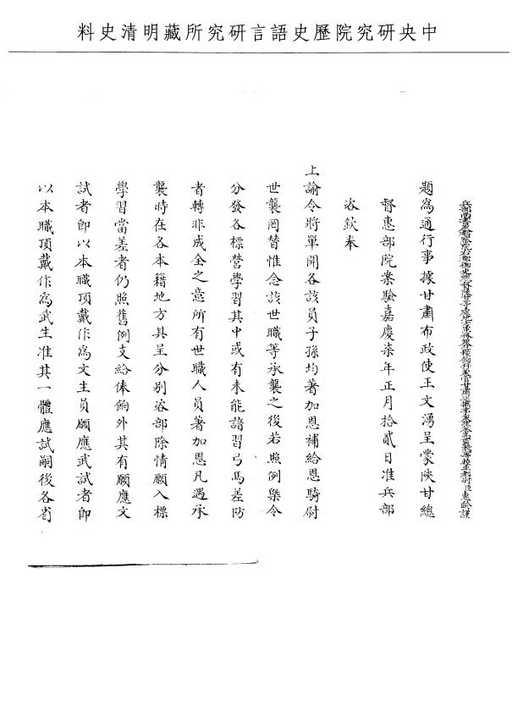 中央研究院歷史語言研究所藏明清史料
題為通行事據甘肅布政使王文湧呈蒙陝甘總
督惠部院案驗嘉慶柒年正月拾貳日准兵部
咨欽奉
上諭令將單開各該員子孫均著加恩補給恩騎尉
世襲罔替惟念該世職等承襲之後若照例槩令
分發各標營學習其中或有未能諳習弓馬差防
者轉非成全之意所有世職人員著加恩凡遇承
襲時在各本籍地方具呈分別咨部除情願入標
學習當差者仍照舊例支給俸餉外其有願應文
試者即以本職頂戴作為文生員願應武試者即
以本職頂戴作為武生准其一體應試嗣後各省